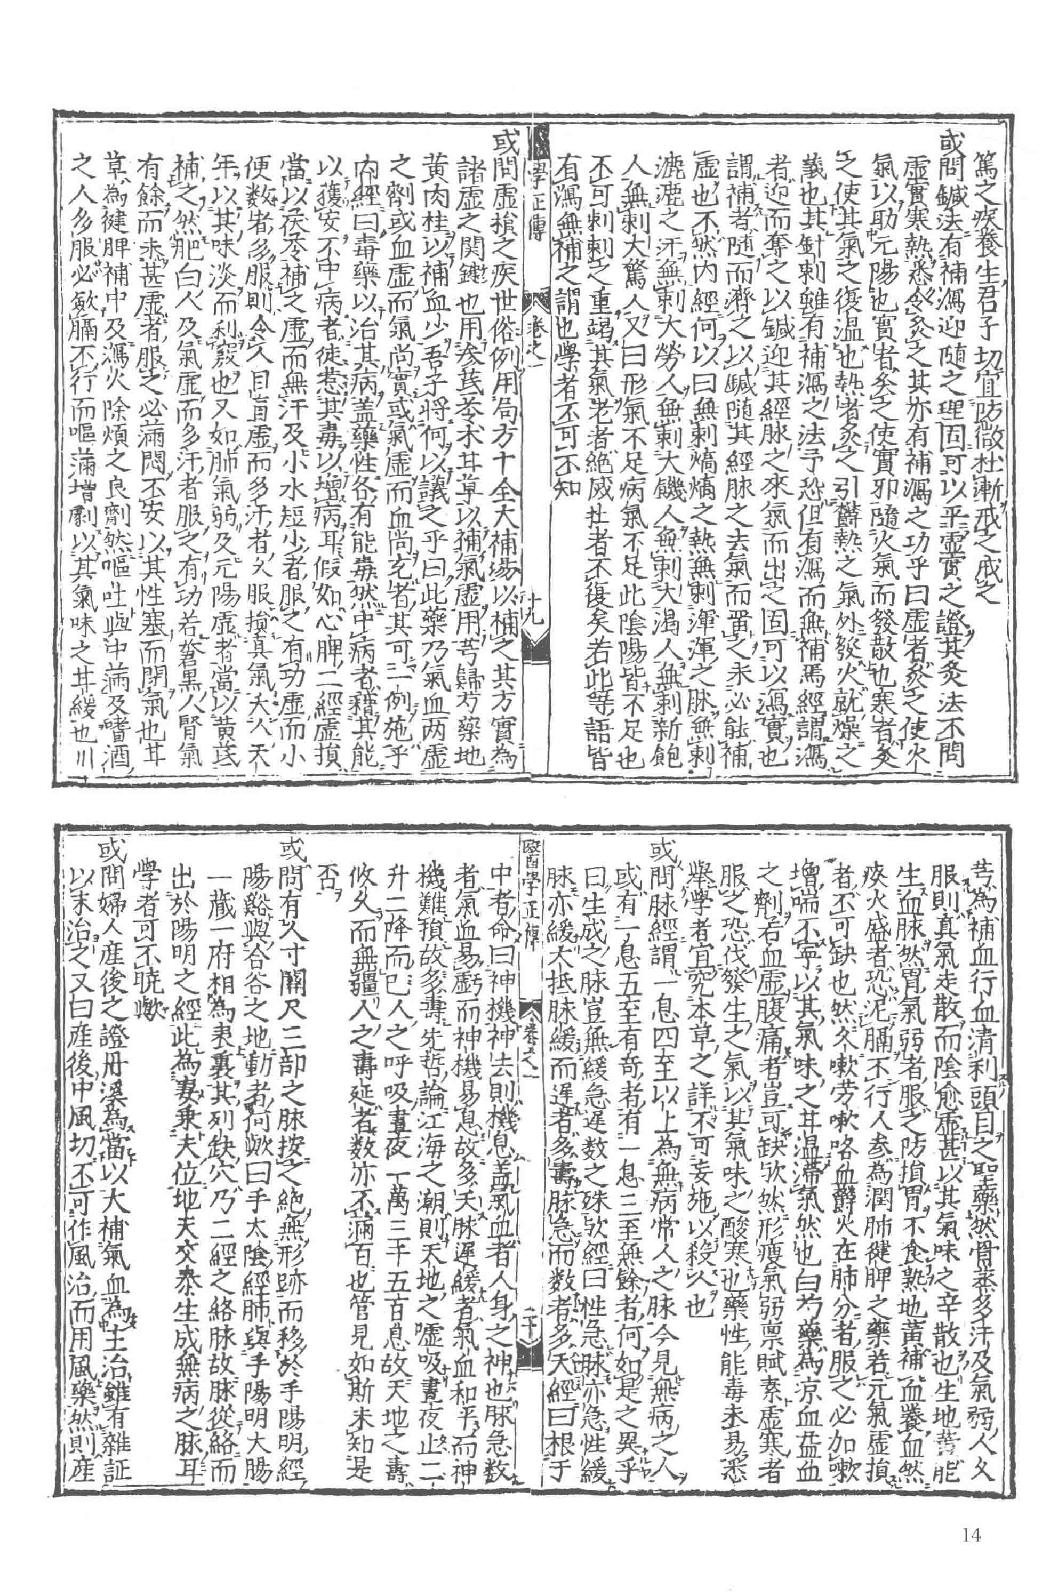 篤之疾養生君子切宜防微杜漸戒之戒之
或問鍼法有補瀉迎隨之理固可以平虛實之證其灸法不問
虛實寒熱悉令灸之其亦有補瀉之功乎曰虛者灸之使火
氣以助元陽也實者灸之使實邪隨火氣而發散也寒者灸
之使其氣之復溫也熱者灸之引欝熱之氣外發火就燥之
義也其針刺雖有補瀉之法予恐但有瀉而無補焉經謂瀉
者迎而奪之以鍼迎其經脉之來氣而出之固可以瀉實也
謂補者隨而濟之以鍼隨其經脉之去氣而畱之未必能補
虛也不然內經何以曰無刺熇熇之熱無刺渾渾之脉無刺
漉漉之汗無刺大勞人無刺大饑人無刺大渴人無刺新飽
人無刺大驚人又曰形氣不足病氣不足此陰陽皆不足也
不可刺刺之重竭其氣老者絕滅壯者不復矣若此等語皆
有瀉無補之謂也學者不可不知
學正傳 卷之一 十九
或問虛損之疾世俗例用局方十全大補湯以補之其方實為
諸虛之関鍵也用参芪苓术甘草以補氣虛用芎歸芍藥地
黄肉桂以補血少吾子將何以議之乎曰此藥乃氣血两虛
之劑或血虛而氣尚實或氣虛而血尚充者其可一例施乎
內經曰毒藥以治其病盖藥性各有能毒然中病者藉其能
以獲安不中病者徒惹其毒以增病耳假如心脾二經虛損
當以茯苓補之虛而無汗及小水短少者服之有功虛而小
便數者多服則令人目盲虛而多汗者久服損真氣夭人天
年以其味淡而利竅也又如肺氣弱及元陽虛者當以黄芪
補之然肥白人及氣虛而多汗者服之有功若蒼黒人腎氣
有餘而未甚虛者服之必滿悶不安以其性塞而閉氣也甘
草為健脾補中及瀉火除煩之良劑然嘔吐與中滿及嗜酒
之人多服必斂膈不行而嘔滿增劇以其氣味之甘緩也川
芎為補血行血清利頭目之聖藥然骨蒸多汗及氣弱人久
服則真氣走散而陰愈虛甚以其氣味之辛散也生地黄能
生血脉然胃氣弱者服之防損胃不食熟地黄補血養血然
痰火盛者恐泥膈不行人参為潤肺健脾之藥若元氣虛損
者不可缺也然久嗽勞嗽咯血欝火在肺分者服之必加嗽
增喘不寧以其氣味之甘溫滯氣然也白芍藥為凉血益血
之劑若血虛腹痛者豈可缺欤然形瘦氣弱禀賦素虛寒者
服之恐伐發生之氣以其氣味之酸寒也藥性能毒未易悉
舉學者宜究本草之詳不可妄施以殺人也
或問脉經謂一息四至以上為無病常人之脉今見無病之人
或有一息五至有奇者有一息三至無餘者何如是之異乎
曰生成之脉豈無緩急遲数之殊欤經曰性急脉亦急性緩
脉亦緩大抵脉緩而遲者多壽脉急而数者多夭經曰根于
醫學正傳 卷之一 二十
中者命曰神機神去則機息盖氣血者人身之神也脉急数
者氣血易虧而神機易息故多夭脉遲緩者氣血和平而神
機難損故多壽先哲論江海之潮則天地之嘘吸晝夜止二
升二降而已人之呼吸晝夜一萬三千五百息故天地之壽
攸久而無疆人之壽延者数亦不滿百也管見如斯未知是
否
或問有人寸關尺三部之脉按之絕無形跡而移於手陽明經
陽谿與合谷之地動者何欤曰手太陰經肺與手陽明大腸
一藏一府相為表裏其列缺穴乃二經之絡脉故脉從絡而
出於陽明之經此為妻乘夫位地天交泰生成無病之脉耳
學者可不曉欤
或問婦人産後之證丹溪為當以大補氣血為主治雖有雜証
以末治之又曰産後中風切不可作風治而用風藥然則産
14